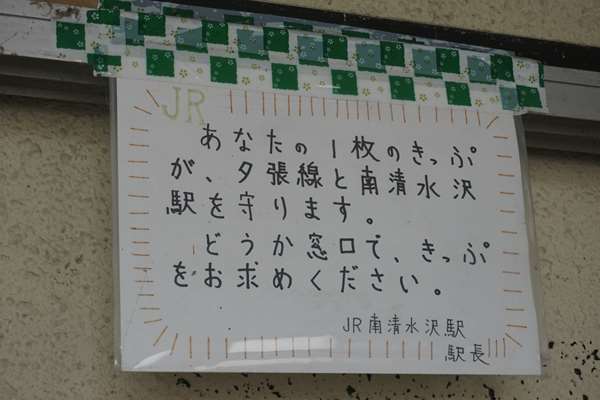 JR
あなたの1枚のきっぷ
が、夕張線と南清水沢
駅を守ります。
どうか窓口で、きっぷ
をお求めください。
JR南清水沢駅
駅長